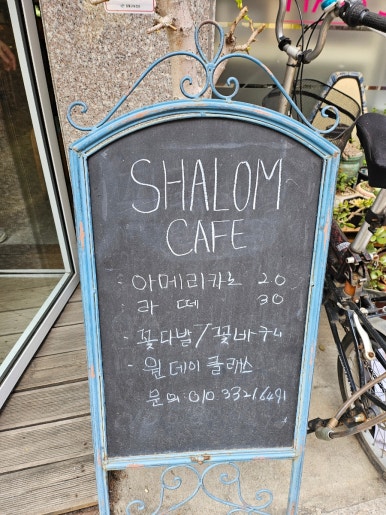 SHALOM
CAFE
· 아메리카노 20
· 라떼 30
· 꽃다발 / 꽃바구니
· 원데이 클래스
문의: 010 3321 6491